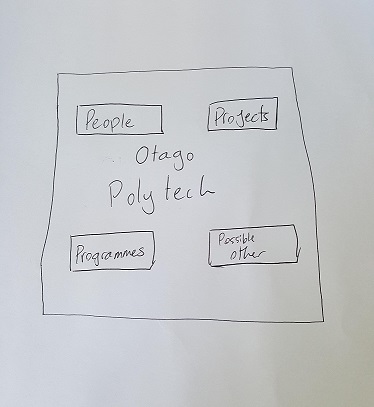 People
Projects
Otago
Polytech
Programmes
Possible
other